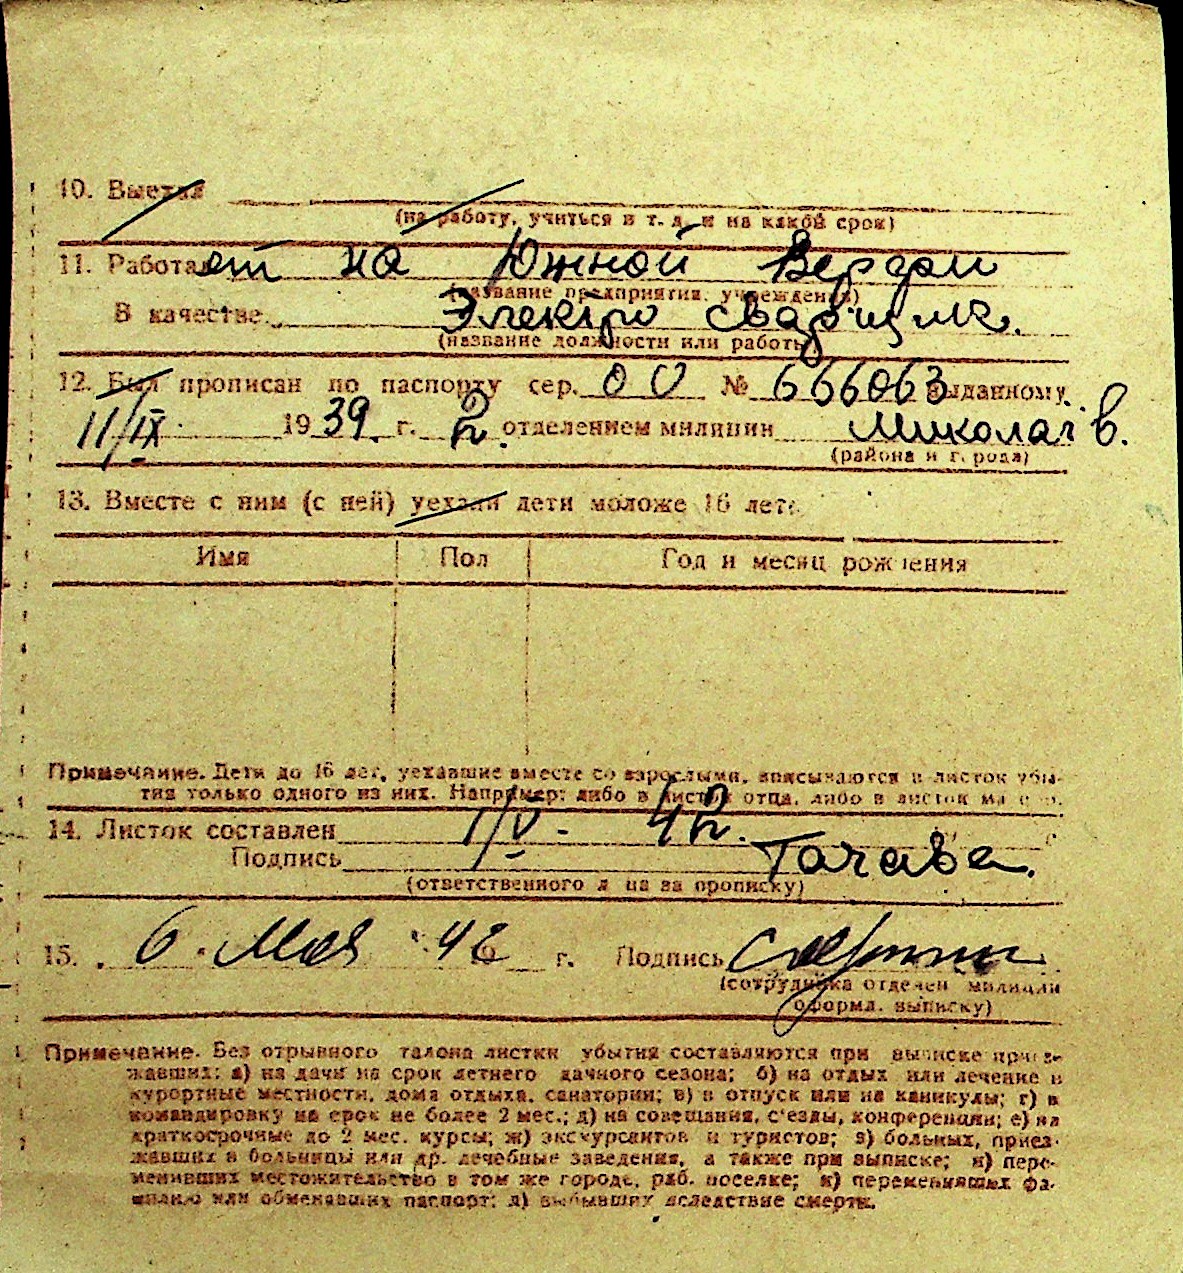 10. Выехал
(на работу, учиться и т. д. и на какой срок)
11. Работает на Южной Верфи
(название предприятия, учреждения)
В качестве Электро сварщика.
(название должности или работы)
12. Был прописан по паспорту сер. 00 № 666063 выданному
11/IX 1939 г. 2. отделением милиции Николаев.
(района и города)
13. Вместе с ним (с ней) уехали дети моложе 16 лет:
Имя Пол Год и месяц рождения
Примечание. Дети до 16 лет, уехавшие вместе со взрослыми, вписываются в листок убы-
тия только одного из них. Например: либо в листок отца, либо в листок матери.
14. Листок составлен 1/V - 42.
Подпись
(ответственного лица за прописку)
15. 6. Мая 42 г. Подпись
(сотрудника отделен милиции
оформл. выписку)
Примечание. Без отрывного талона листки убытия составляются при выписке приез-
жавших: а) на дачи на срок летнего дачного сезона; б) на отдых или лечение в
курортные местности, дома отдыха, санатории; в) в отпуск или на каникулы; г) в
командировку на срок не более 2 мес.; д) на совещания, с'езды, конференции; е) на
краткосрочные до 2 мес. курсы; ж) экскурсантов и туристов; з) больных, приез-
жавших в больницы или др. лечебные заведения, а также при выписке; и) пере-
менивших местожительство в том же городе, раб. поселке; к) переменивших фа-
милию или обменявших паспорт; л) выбывших вследствие смерти.